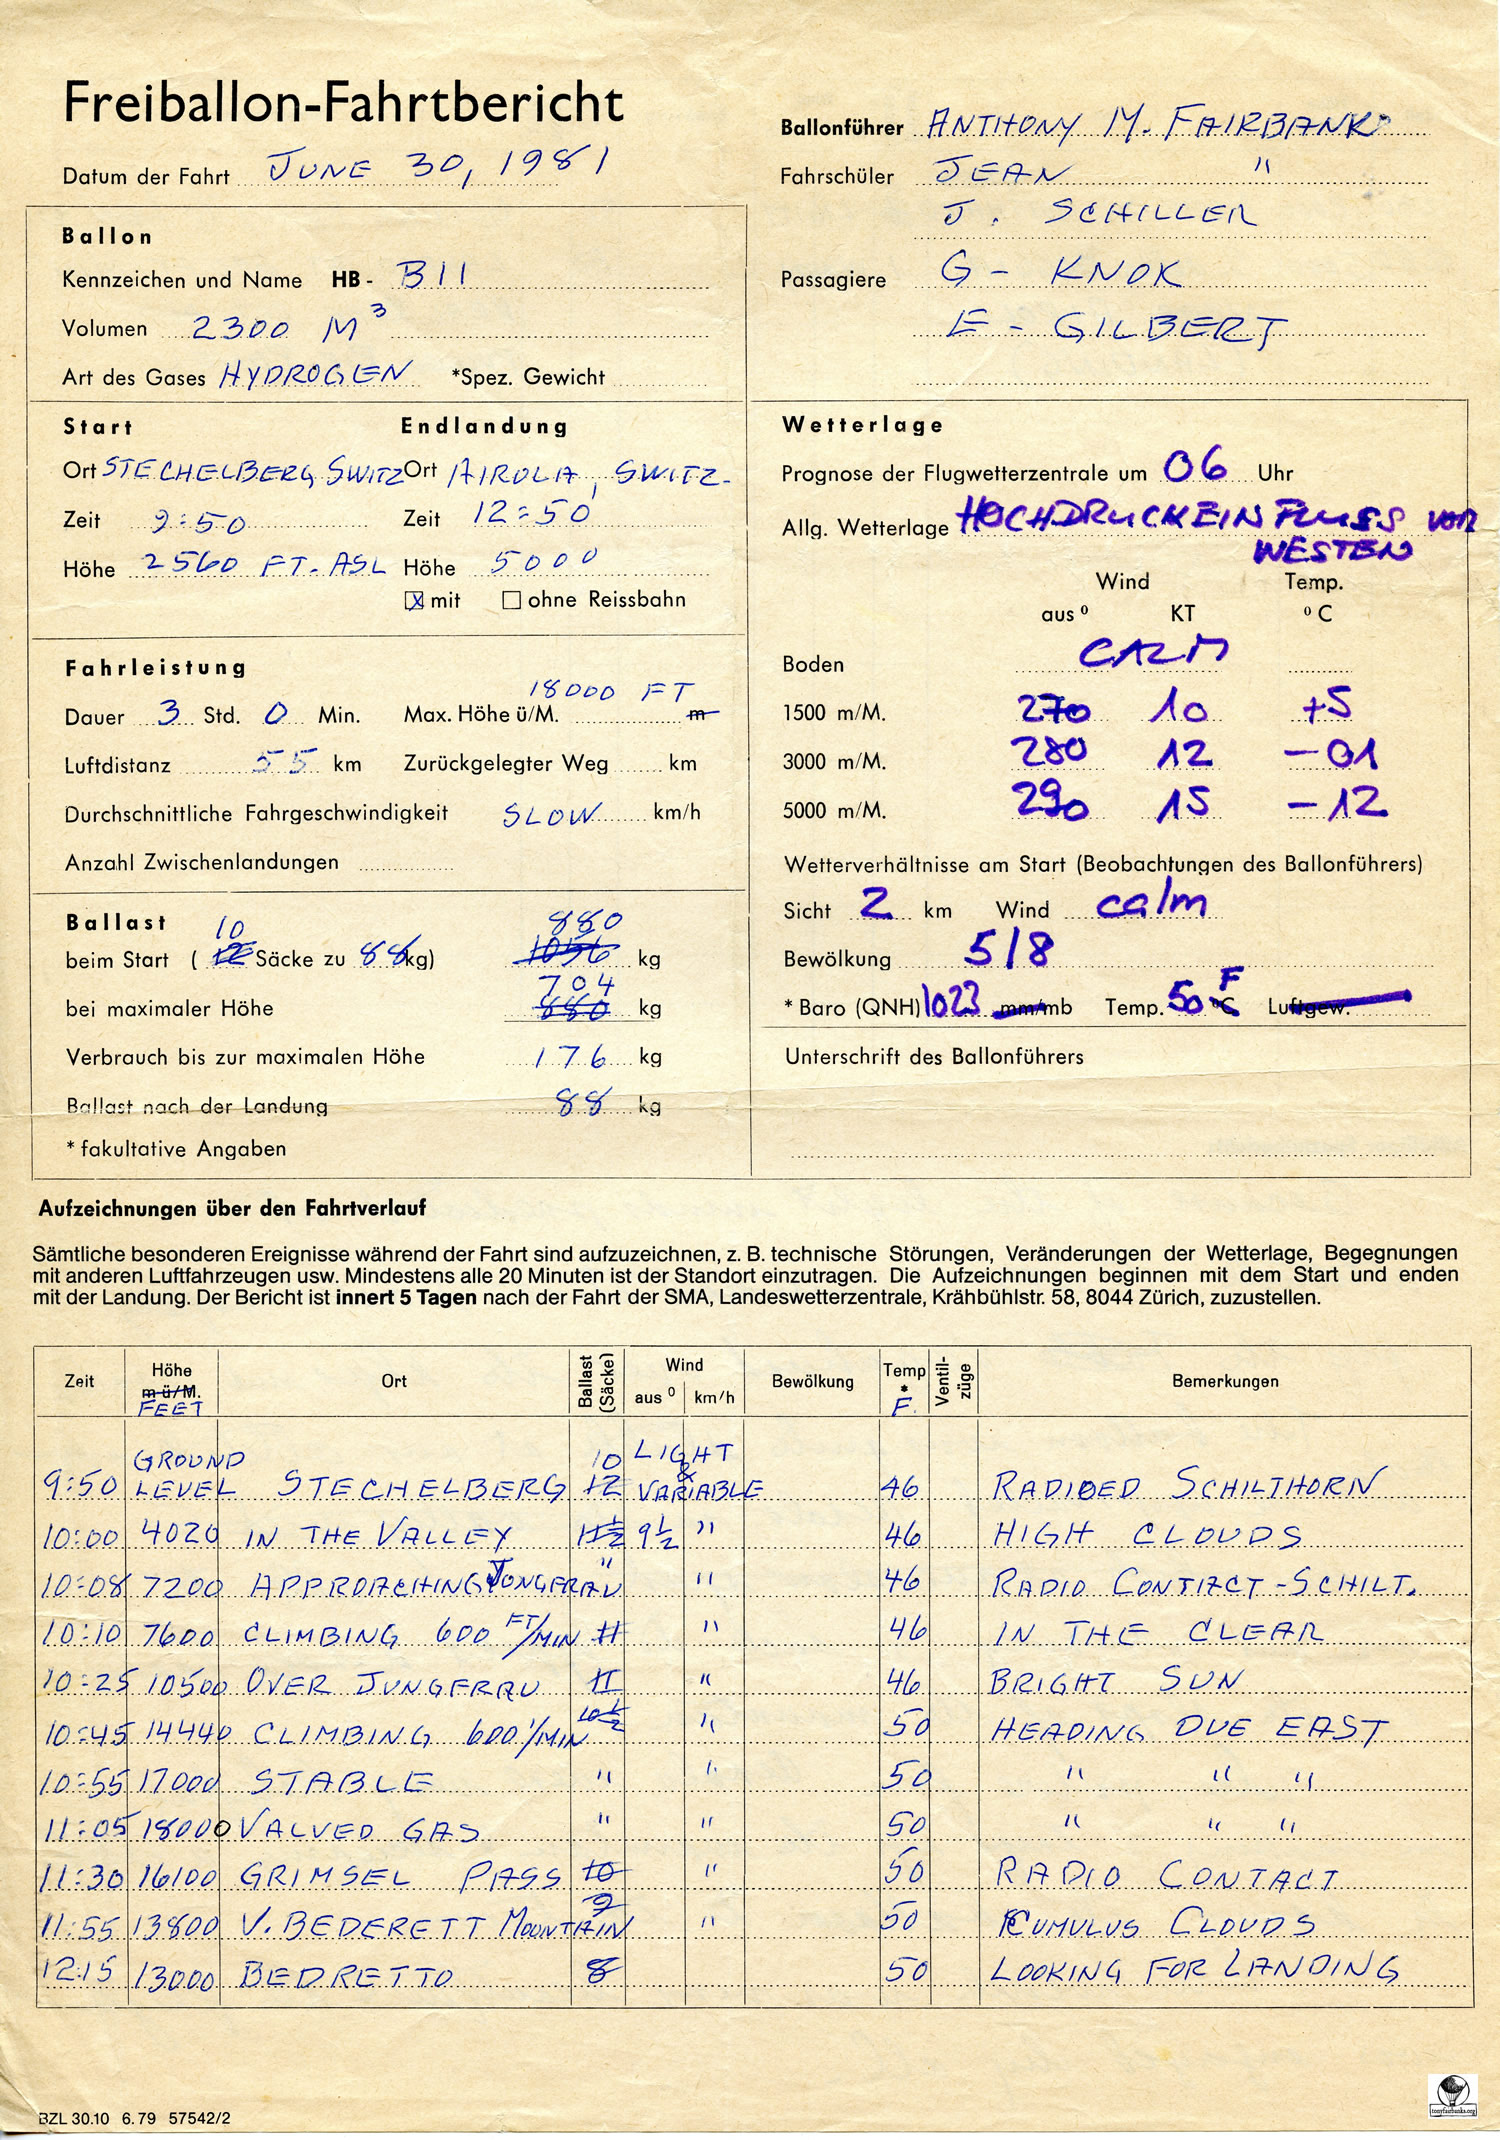 Freiballon-Fahrtbericht
Datum der Fahrt JUNE 30, 1981
Ballonführer ANTHONY M. FAIRBANKS
Fahrschüler JEAN "
J. SCHILLER
Passagiere G - KNOK
E - GILBERT
Ballon
Kennzeichen und Name HB- B11
Volumen 2300 M3
Art des Gases HYDROGEN *Spez. Gewicht
Start Endlandung
Ort STECHELBERG, SWITZ Ort AIROLA, SWITZ.
Zeit 9:50 Zeit 12:50
Höhe 2560 FT. ASL Höhe 5000
X mit ohne Reissbahn
Fahrleistung
18000 FT
Dauer 3 Std. 0 Min. Max. Höhe ü/M. m
Luftdistanz 55 km Zurückgelegter Weg km
Durchschnittliche Fahrgeschwindigkeit SLOW km/h
Anzahl Zwischenlandungen
Ballast
10 880
beim Start ( 12 Säcke zu 88 kg) 1056 kg
704
bei maximaler Höhe 880 kg
Verbrauch bis zur maximalen Höhe 176 kg
Ballast nach der Landung 88 kg
* fakultative Angaben
Wetterlage
Prognose der Flugwetterzentrale um 06 Uhr
Allg. Wetterlage HOCHDRUCKEINFLUSS VON
WESTEN
Wind Temp.
aus º KT º C
Boden CALM
1500 m/M. 270 10 +5
3000 m/M. 280 12 -01
5000 m/M. 290 15 -12
Wetterverhältnisse am Start (Beobachtungen des Ballonführers)
Sicht 2 km Wind calm
Bewölkung 5/8
* Baro (QNH) 1023 mm/mb Temp. 50 F ºC Luftgew.
Unterschrift des Ballonführers
Aufzeichnungen über den Fahrtverlauf
Sämtliche besonderen Ereignisse während der Fahrt sind aufzuzeichnen, z. B. technische Störungen, Veränderungen der Wetterlage, Begegnungen
mit anderen Luftfahrzeugen usw. Mindestens alle 20 Minuten ist der Standort einzutragen. Die Aufzeichnungen beginnen mit dem Start und enden
mit der Landung. Der Bericht ist innert 5 Tagen nach der Fahrt der SMA, Landeswetterzentrale, Krähbühlstr. 58, 8044 Zürich, zuzustellen.
Zeit Höhe m ü/M. FEET Ort Ballast (Säcke) Wind aus º km/h Bewölkung Temp * F. Ventil-züge Bemerkungen
9:50 GROUND LEVEL STECHELBERG 10 12 LIGHT & VARIABLE 46 RADIOED SCHILTHORN
10:00 4020 IN THE VALLEY 11½ 9½ " 46 HIGH CLOUDS
10:08 7200 APPROACHING JUNGFRAU " " 46 RADIO CONTACT - SCHILT.
10:10 7600 CLIMBING 600 FT/MIN 11 " 46 IN THE CLEAR
10:25 10500 OVER JUNGFRAU 11 " 46 BRIGHT SUN
10:45 14440 CLIMBING 600'/MIN 10½ " 50 HEADING DUE EAST
10:55 17000 STABLE " " 50 " " "
11:05 18000 VALVED GAS " " 50 " " "
11:30 16100 GRIMSEL PASS 10 " 50 RADIO CONTACT
11:55 13800 V. BEDERETT MOUNTAIN 9 " 50 CUMULUS CLOUDS
12:15 13000 BEDRETTO 8 50 LOOKING FOR LANDING
BZL 30.10 6.79 57542/2
tonyfairbanks.org